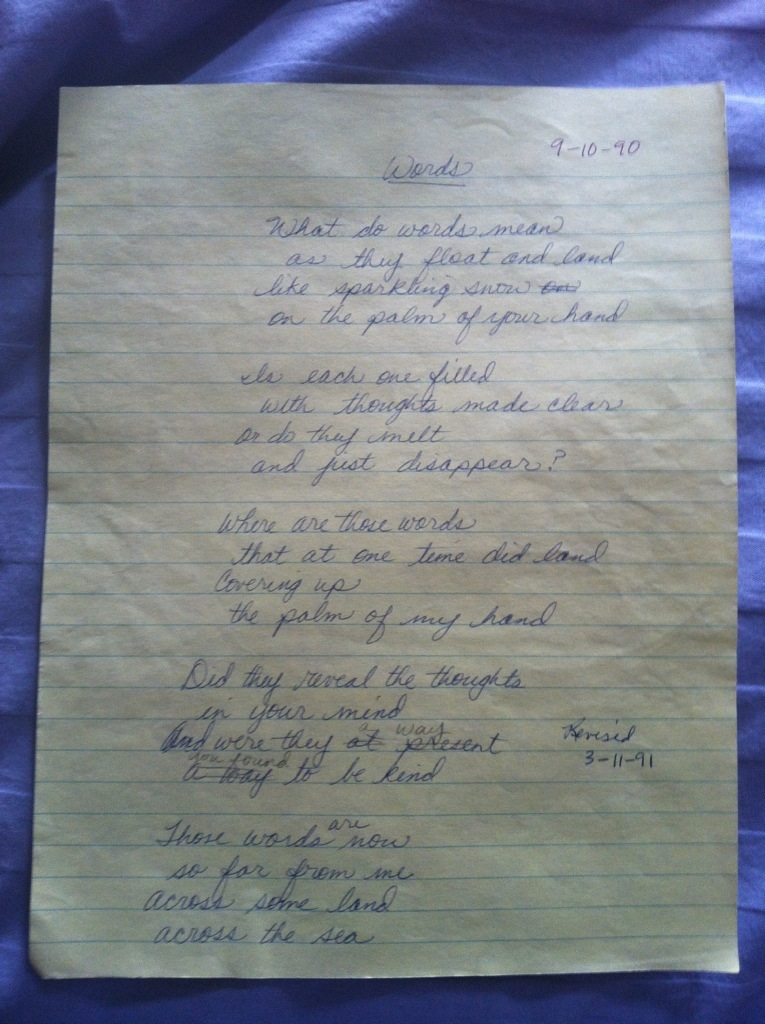 9-10-90
Words
What do words mean
as they float and land
like sparkling snow on
on the palm of your hand
Is each one filled
with thoughts made clear
or do they melt
and just disappear?
Where are those words
that at one time did land
Covering up
the palm of my hand
Did they reveal the thoughts
in your mind
a way
And were they at present
Revised
3-11-91
you found
a way to be kind
are
Those words now
so far from me
across some land
across the sea